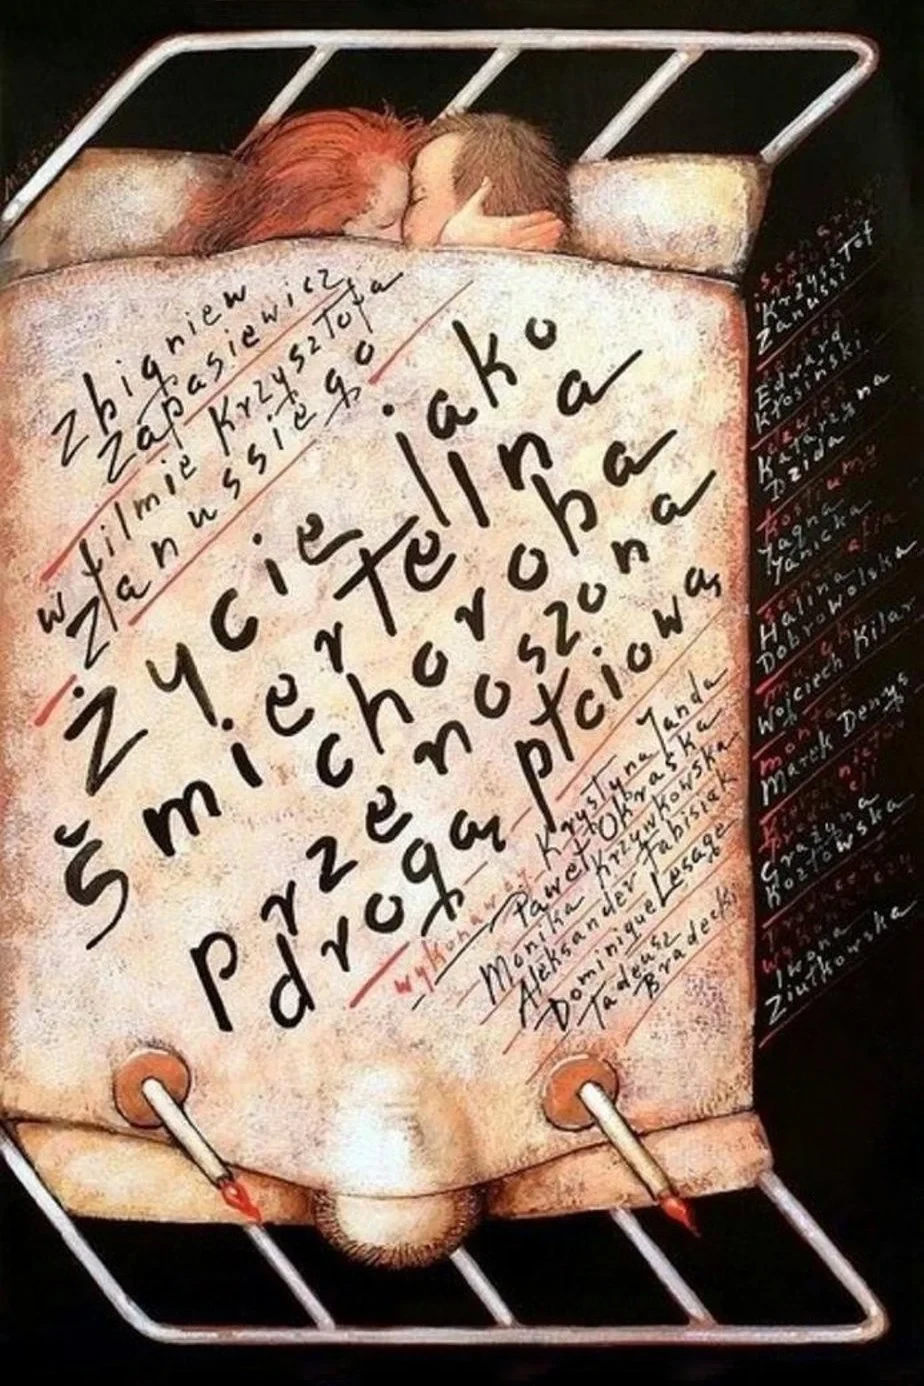 Zbigniew
Zapasiewicz
w filmie Krzysztofa
Zanussiego
Życie jako
śmiertelna
choroba
przenoszona
drogą płciową
wykonawcy Krystyna Janda
Paweł Okraska
Monika Krzywkowska
Aleksander Fabisiak
Dominique Lesage
Tadeusz
Bradecki
Krzysztof
Zanussi
Edward
Kłosiński
dźwięk
Katarzyna
Dzida
kostiumy
Jagna
Janicka
Halina
Dobrowolska
Wojciech Kilar
montaż
Marek Denys
Grażyna
Kozłowska
Iwona
Ziułkowska